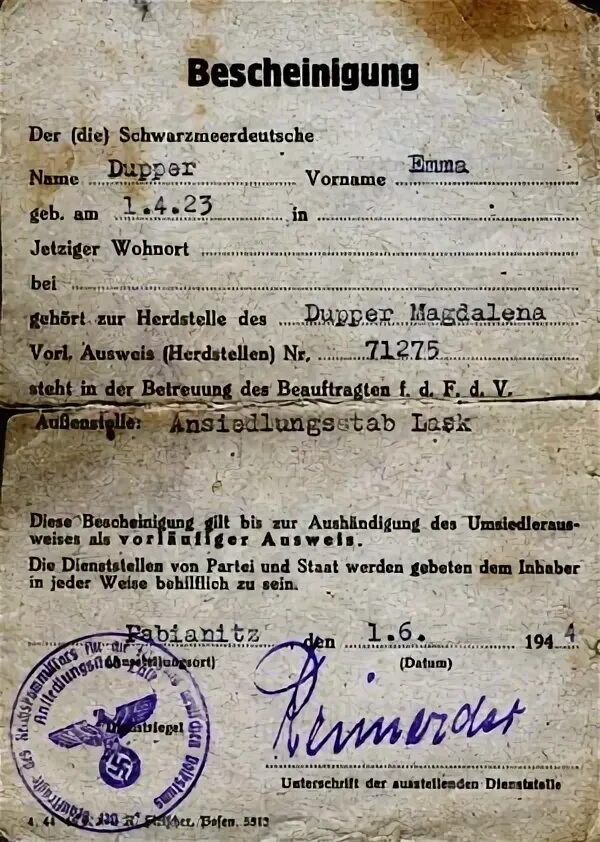 Bescheinigung
Der (die) Schwarzmeerdeutsche
Name Dupper Vorname Emma
geb. am 1.4.23 in
Jetziger Wohnort
bei
gehört zur Herdstelle des Dupper Magdalena
Vorl. Ausweis (Herdstellen) Nr. 71275
steht in der Betreuung des Beauftragten f. d. F. d. V.
Außenstelle: Ansiedlungsstab Lask
Diese Bescheinigung gilt bis zur Aushändigung des Umsiedleraus-
weises als vorläufiger Ausweis.
Die Dienststellen von Partei und Staat werden gebeten dem Inhaber
in jeder Weise behilflich zu sein.
Pabianitz den 1.6. 1944
(Ausstellungsort) (Datum)
Ansiedlungsstab
Dienstsiegel
Unterschrift der ausstellenden Dienststelle